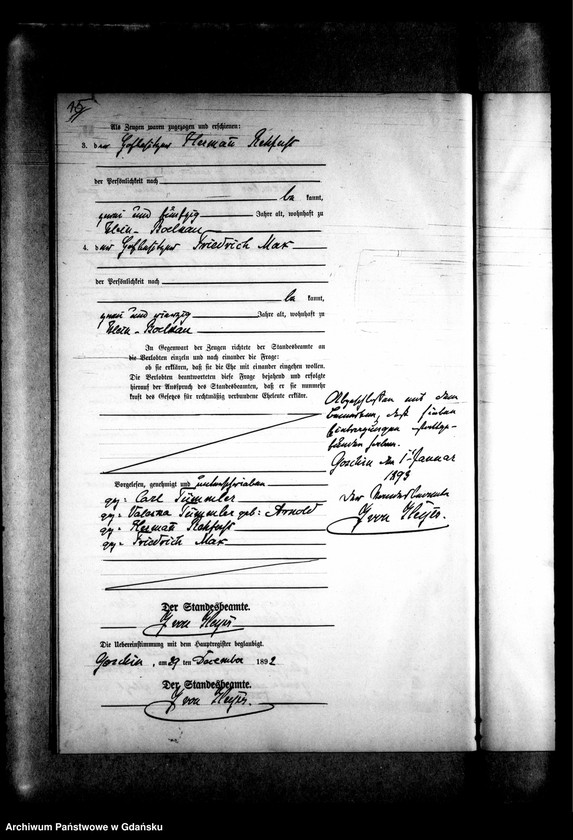 15
Als Zeugen waren zugezogen und erschienen:
3. der Hofbesitzer Hermann Rehfuß
der Persönlichkeit nach
be kannt,
zwei und fünfzig Jahre alt, wohnhaft zu
Klein-Boelkau
4. der Hofbesitzer Friedrich Max
der Persönlichkeit nach
be kannt,
zwei und vierzig Jahre alt, wohnhaft zu
Klein-Boelkau
In Gegenwart der Zeugen richtete der Standesbeamte an
die Verlobten einzeln und nach einander die Frage:
ob sie erklären, daß sie die Ehe mit einander eingehen wollen.
Die Verlobten beantworteten diese Frage bejahend und erfolgte
hierauf der Ausspruch des Standesbeamten, daß er sie nunmehr
kraft des Gesetzes für rechtmäßig verbundene Eheleute erkläre.
Vorgelesen, genehmigt und unterschrieben
gez: Carl Tümmler
gez: Tümmler geb: Arnold
gez: Hermann Rehfuß
gez: Friedrich Max
Der Standesbeamte.
von Heyer
Die Uebereinstimmung mit dem Hauptregister beglaubigt.
Goschin, am 29 ten December 1892
Der Standesbeamte.
von Heyer.
Abgeschlossen mit dem
Bemerken, daß
Eintragungen stattge-
funden haben.
Goschin den 1. Januar
1893
Der Standesbeamte
von Heyer.
Archiwum Państwowe w Gdańsku